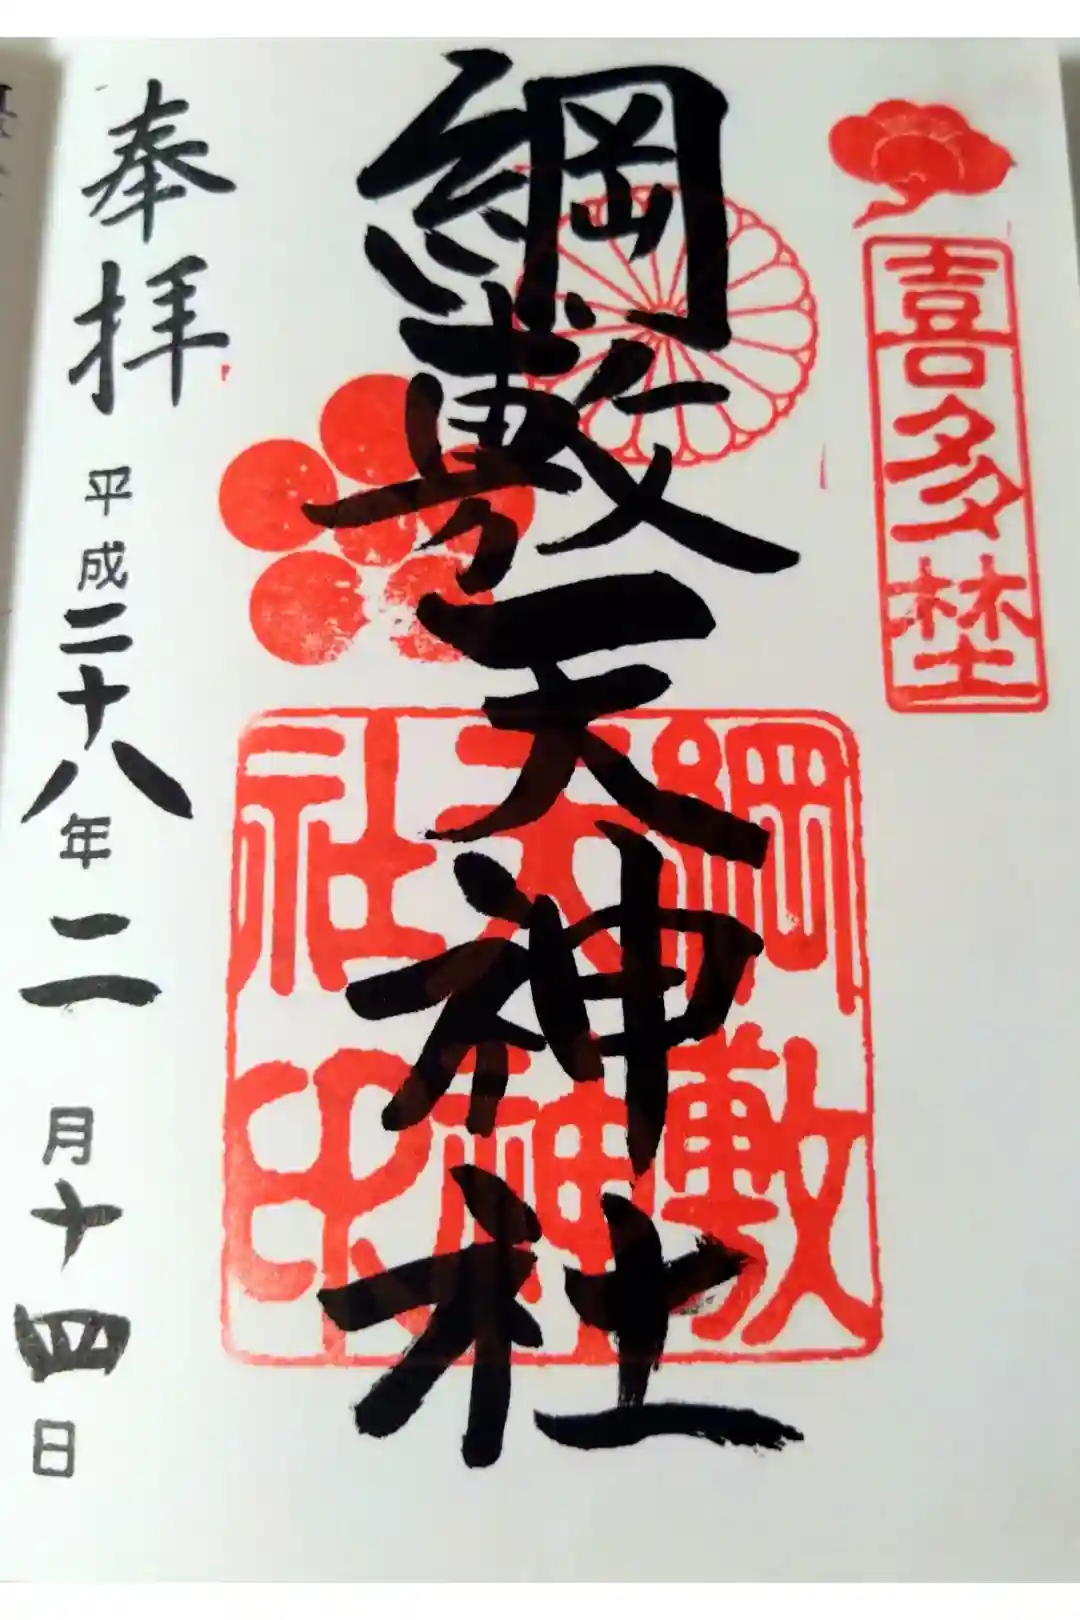 喜多埜
綱敷天神社
綱敷
天神
社印
奉拝
平成二十八年二月十四日